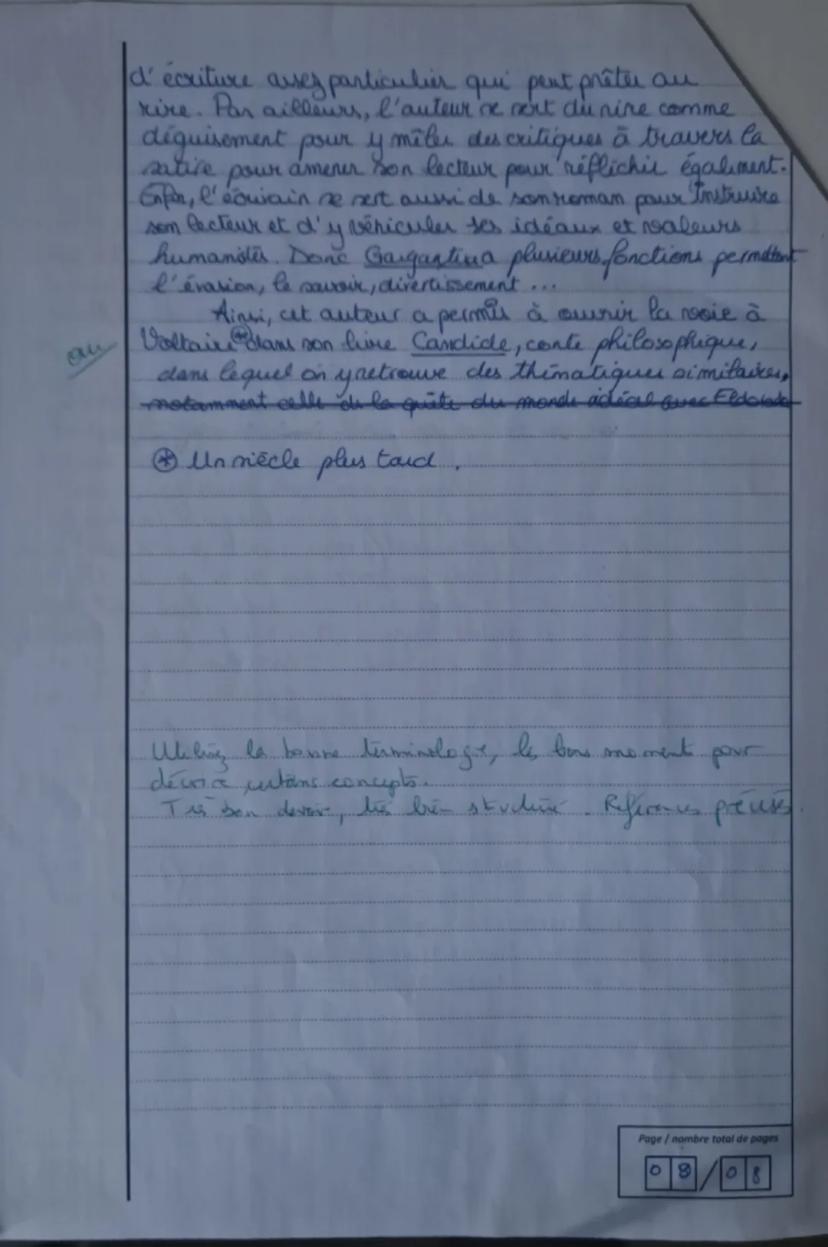 d'écriture assez particulier qui peut prêter au
rire. Par ailleurs, l'auteur se sert du rire comme
déguisement pour y mêler des critiques à travers la
satire pour amener son lecteur pour réfléchir également.
Enfin, l'écrivain se sert aussi de son roman pour instruire
son lecteur et d'y véhiculer ses idéaux et valeurs
humanistes. Donc Gargantua plusieurs fonctions permettant
l'évasion, le savoir, divertissement...
Ainsi, cet auteur a permis à ouvrir la voie à
Voltaire * dans son livre Candide, conte philosophique,
dans lequel on y retrouve des thématiques similaires,
notamment celle de la quête du monde idéal avec Eldorado
* Un siècle plus tard.
Utilisez la bonne terminologie, les bons moments pour
certains concepts.
Très bon devoir, très bien structuré. Références précises.
Page / nombre total de pages
08/08